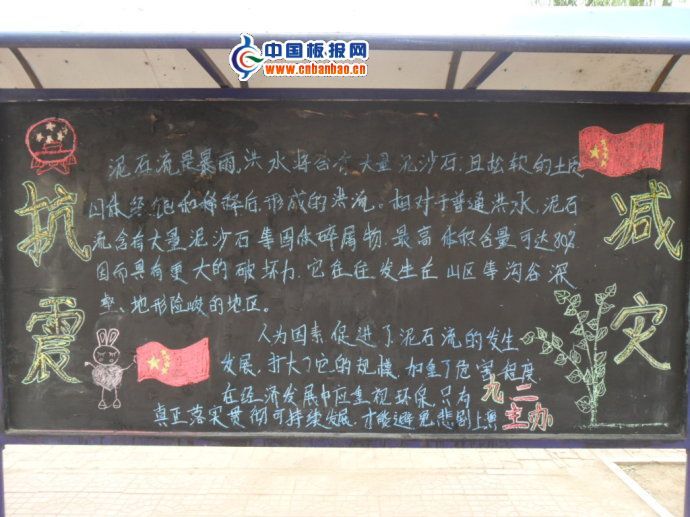 中国板报网
www.cnbanbao.cn
抗震
减灾
泥石流是暴雨,洪水将含有大量泥沙石,且松软的土质
山体经饱和稀释后,形成的洪流。相对于普通洪水,泥石
流含有大量泥沙石等固体碎屑物,最高体积含量可达80%
因而具有更大的破坏力,它往往发生在山区等沟谷深
壑、地形险峻的地区。
人为因素促进了泥石流的发生
发展,扩大了它的规模,加重了危害程度
在经济发展中应重视环保,只有
真正落实贯彻可持续发展,才能避免悲剧上演
九二
主办